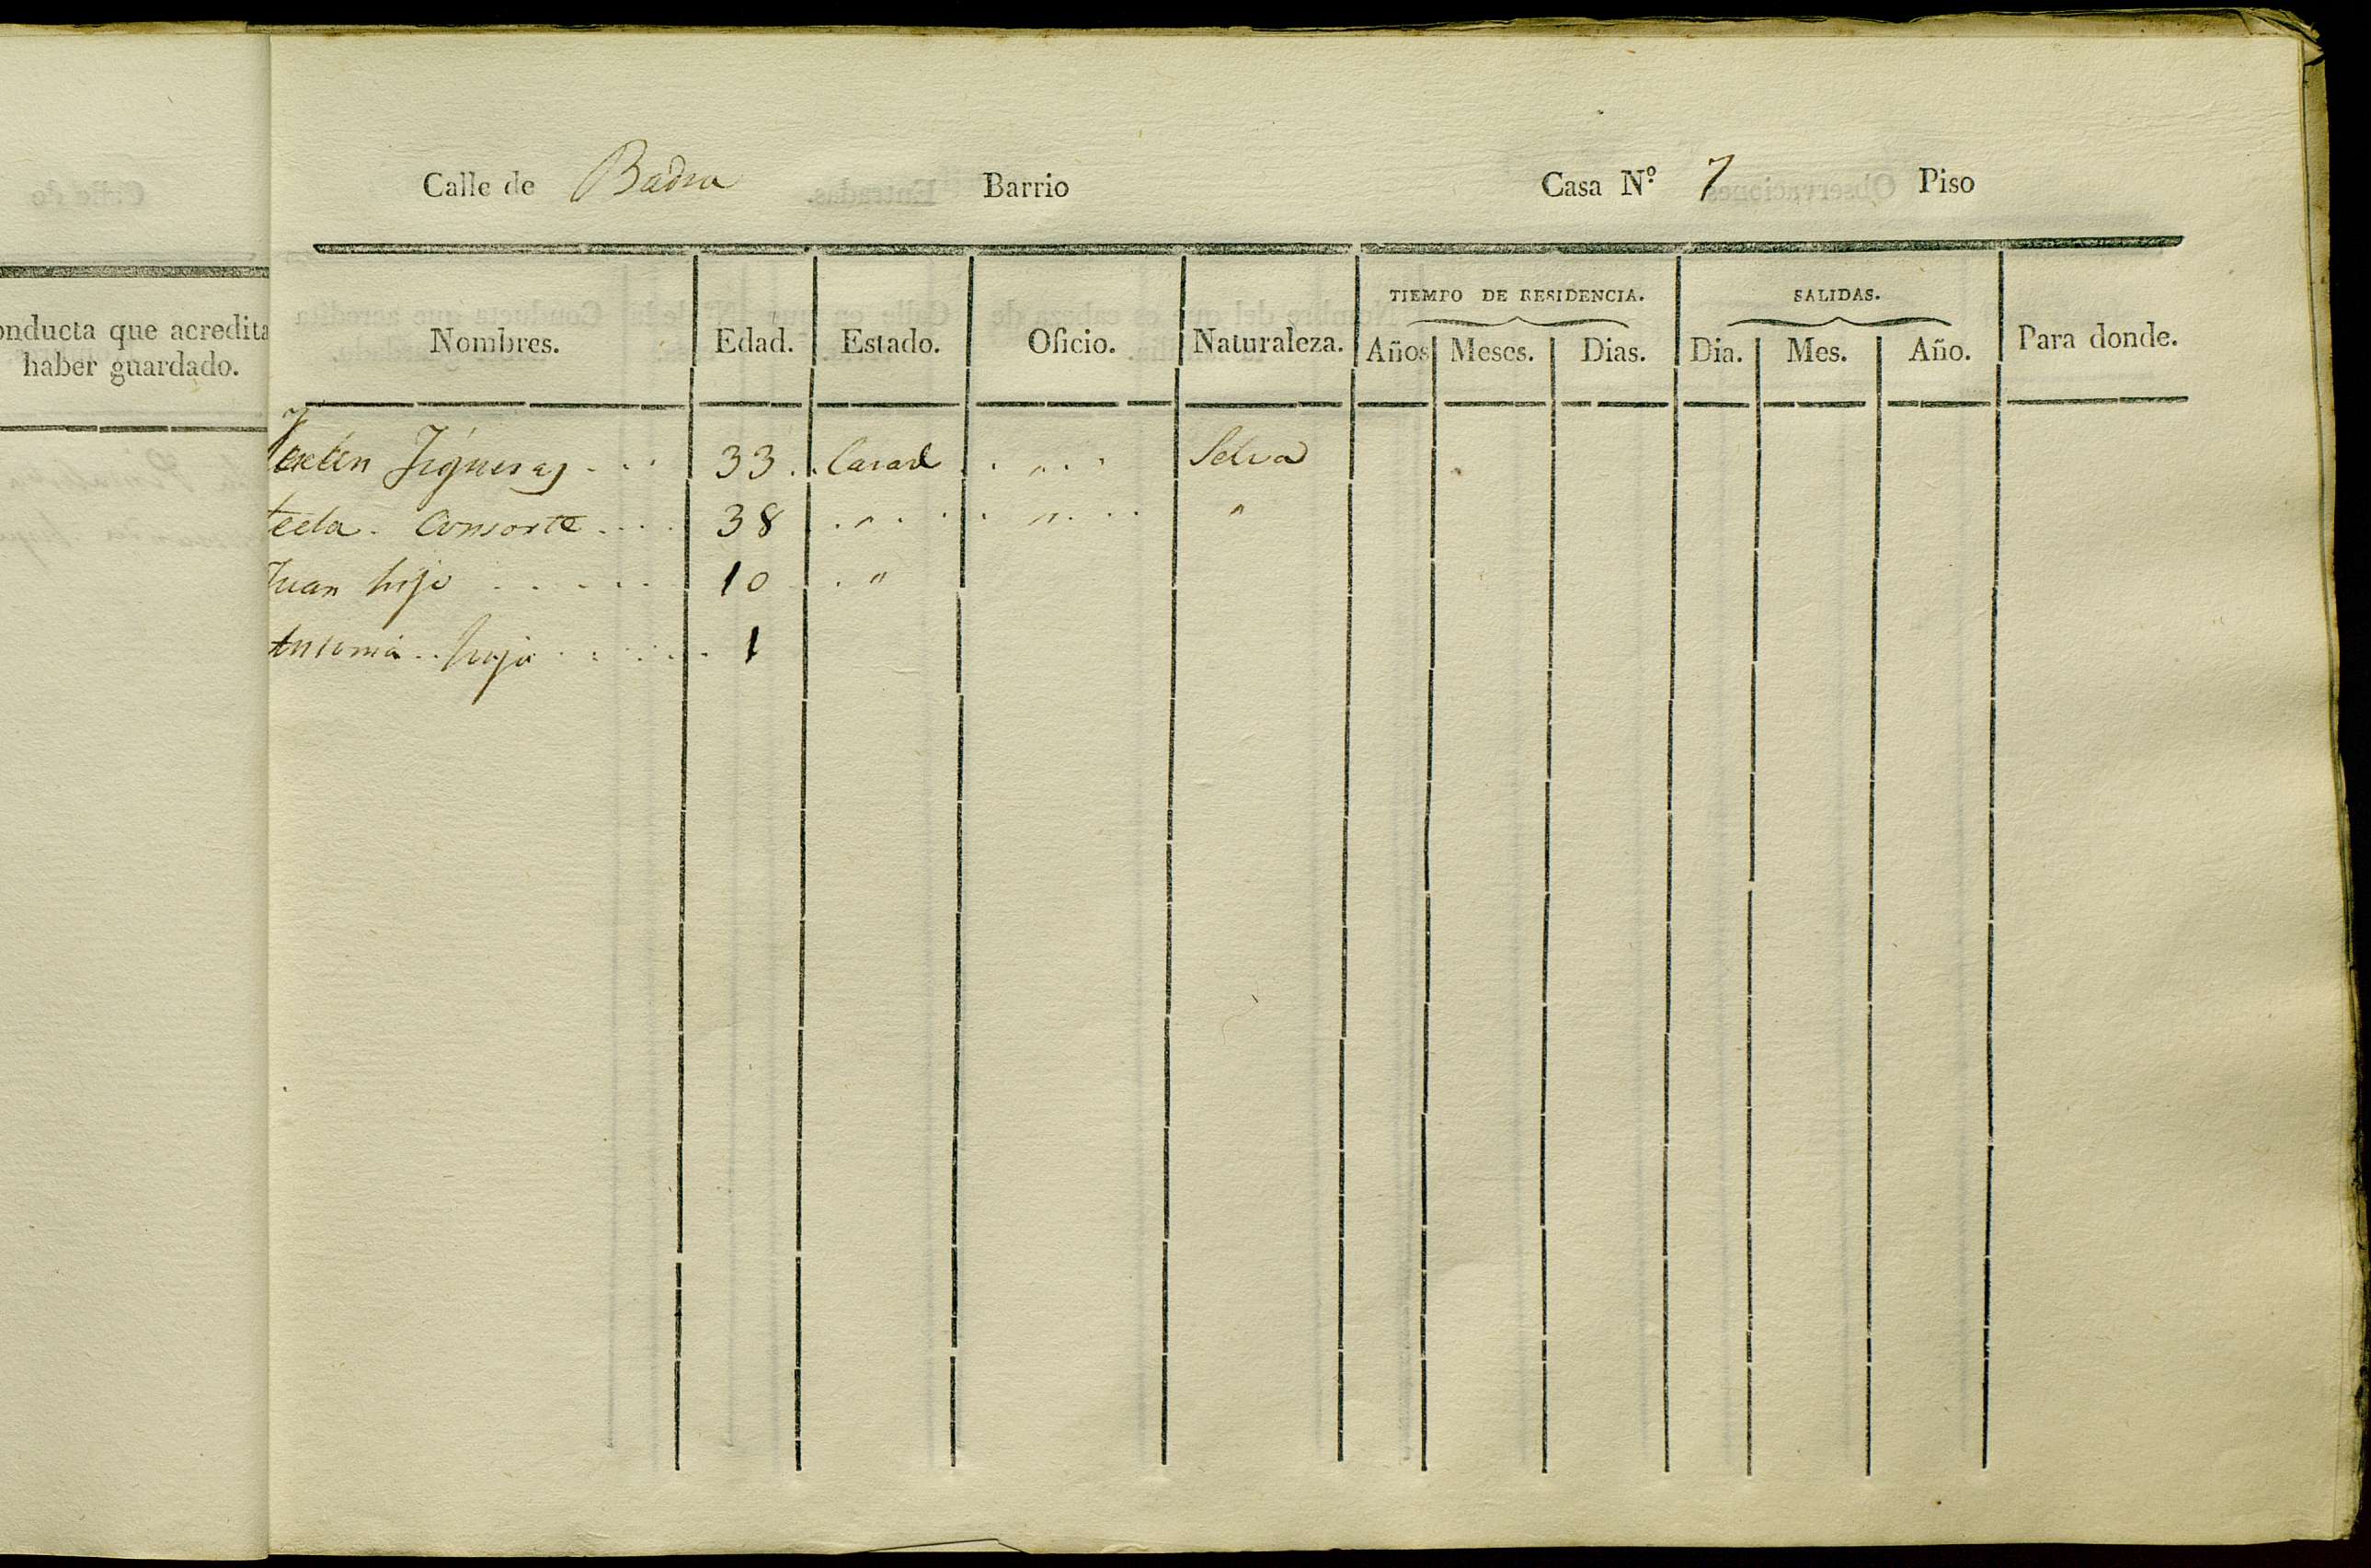 Calle de Badia Barrio Casa N.º 7 Piso
onducta que acredita
haber guardado.
TIEMPO DE RESIDENCIA. SALIDAS.
Nombres. Edad. Estado. Oficio. Naturaleza. Años Meses. Dias. Dia. Mes. Año. Para donde.
Figueras . . . 33 . . Casad . . " . . Selva
tecla . Consorte . . . . 38 . " . . . . " . . . "
Juan hijo . . . . . 10 . "
Antonia . . hija . . . . . . 1